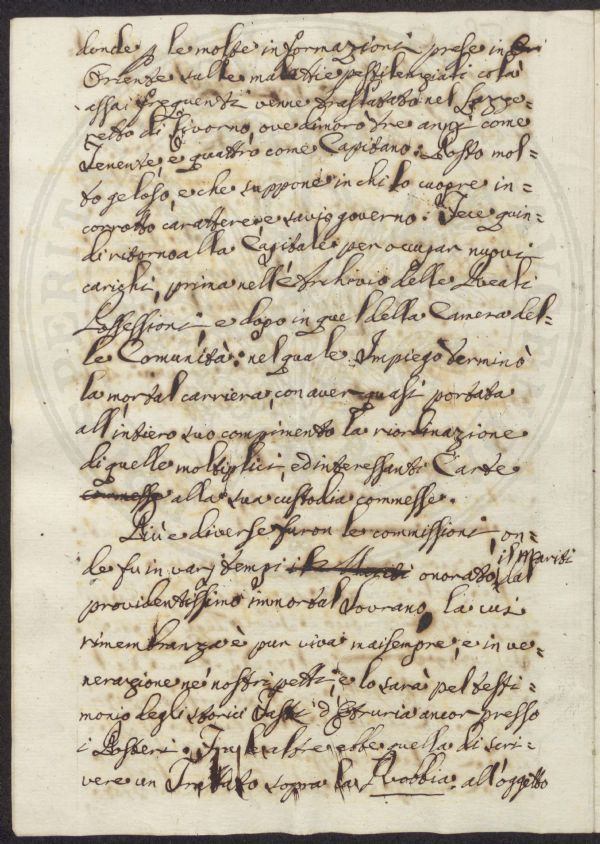 donde p le molte informazioni prese in
Oriente sulle malatie pestilenziali colà
assai frequenti venne traslatato nel Lazze=
retto di Livorno, ove dimorò tre anni come
Tenente, e quattro come Capitano: Posto mol=
to geloso, e che suppone in chi lo cuopre in=
corrotto carattere, e savio governo: Fece quin=
di ritorno alla Capitale per occupar nuovi
carighi, prima nell'Archivio delle Reali
Possessioni, e dopo in quel della Camera del=
le Comunità: nel quale Impiego terminò
la mortal carriera, con aver quasi portata
all'intiero suo compimento la riordinazione
di quelle moltiplici, ed interessanti Carte
commesse alla sua custodia commesse.
Più e diverse furon le commissioni, on=
de fu in varj tempi il Mariti onorato il Mariti dal
providentissimo immortal Sovrano, la cui
rimembranza è pur viva maisempre, e in ve=
nerazione ne' nostri petti, e lo sarà pel testi=
monio degli storici Fasti d'Etruria ancor presso
i Posteri. Infra l'altre ebbe quella di scri=
vere un Trattato sopra la Robbia all'oggetto